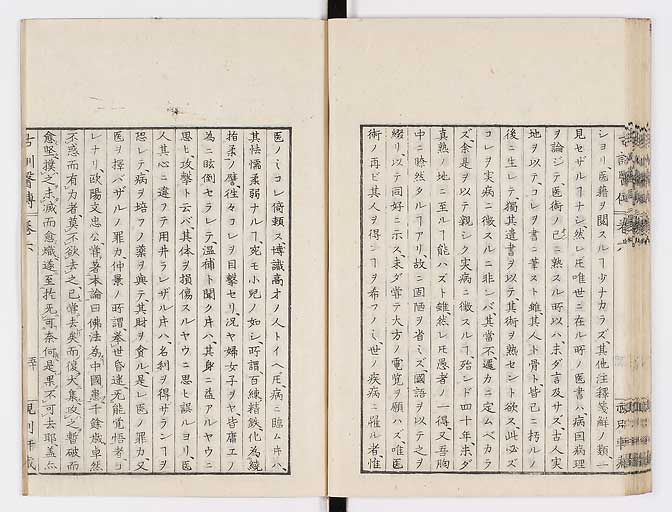 シヨリ医籍ヲ閲スルヿ少ナカラズ其他注釋箋解ノ類一
見セザルヿナシ然レ𪜈唯世ニ在ル所ノ医書ハ病因病理
ヲ論ジテ医術ノ已ニ熟スル所以ハ未ダ言及サズ古人実
地ヲ以テコレヲ書ニ筆スト雖其人ト骨ト皆已ニ朽ルノ
後ニ生レテ獨其遺書ヲ以テ其術ヲ熟セント欲ス此必ズ
コレヲ実病ニ徴スルニ非レバ其當不遽カニ定ムベカラ
ズ余是ヲ以テ親シク実病ニ徴スルヿ殆ンド四十年未ダ
真熟ノ地ニ至ルヿ能ハズト雖然レ𪜈愚者ノ一得又吾胸
中ニ瞭然タルヿアリ故ニ固陋ヲ省ミズ國語ヲ以テ之ヲ
綴リ以テ同好ニ示ス未ダ嘗テ大方ノ電覧ヲ願ハズ唯医
術ノ再ビ其人ヲ得ンヿヲ希フノミ世ノ疾病ニ罹ル者惟
医ノミコレ倚頼ス博識高才ノ人トイヘ𪜈病ニ臨ム片ハ
其怯懦柔弱ナルヿ宛モ小児ノ如シ所謂百練精鉄化為繞
指柔ノ譬往々コレヲ目撃セリ况ヤ婦女子ヲヤ皆庸工ノ
為ニ眩倒セラレテ温補ト聞ク片ハ其身ニ益アルヤウニ
思ヒ攻撃ト云バ其体ヲ損傷スルヤウニ思ヒ誤ルヨリ医
人其心ニ違フテ用井ラレザル片ハ名利ヲ得ザランヿヲ
恐レテ病ヲ培フノ薬ヲ與テ其財ヲ貪ル是レ医ノ罪カ又
医ヲ擇バザルノ罪カ仲景ノ所謂挙世昏迷无能覚悟者コ
レナリ欧陽文忠公嘗著本論曰佛法為中國患千餘歳卓然
不惑而有力者莫不欲去之已嘗去矣而復大集攻之暫破而
愈堅撲之未滅而愈熾遂至於无可奈何是果不可去耶蓋亦
古訓醫傳 巻六